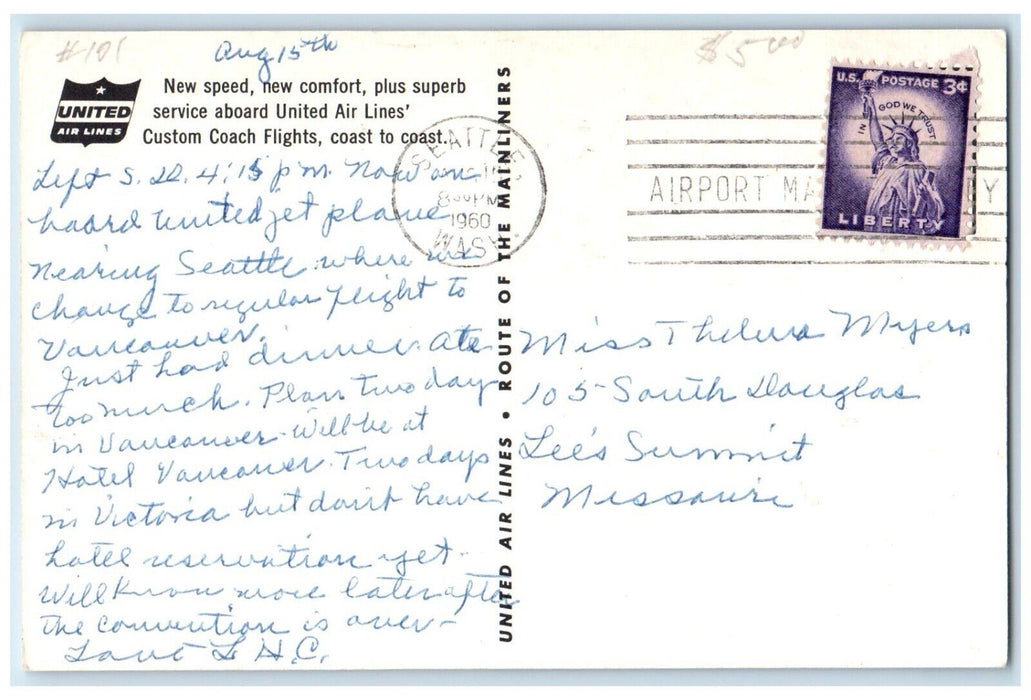 #101
Aug 15th
$5.00
UNITED
AIR LINES
New speed, new comfort, plus superb
service aboard United Air Lines'
Custom Coach Flights, coast to coast.
Left S. D. 4:15 p m. Now on
board United jet plane
nearing Seattle where we
change to regular flight to
Vancouver.
Just had dinner. Ate
too much. Plan two days
in Vancouver. Will be at
Hotel Vancouver. Two days
in Victoria but don't have
hotel reservation yet.
Will know more later after
the convention is over-
Love L H.C.
UNITED AIR LINES • ROUTE OF THE MAINLINERS
SEATTLE,
8 PM
1960
WASH.
AIRPORT MA
Y
U.S. POSTAGE 3¢
IN GOD WE TRUST
LIBERTY
Miss Thelma Myers
105 South Douglas
Lee's Summit
Missouri